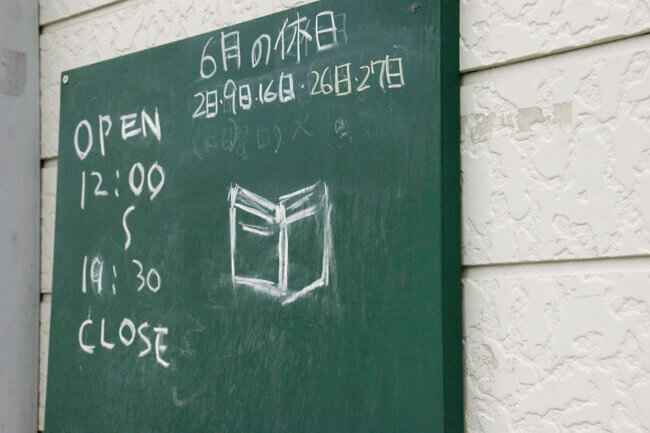 6月の休日
2日・9日・16日・26日・27日
OPEN
12:00
〜
19:30
CLOSE